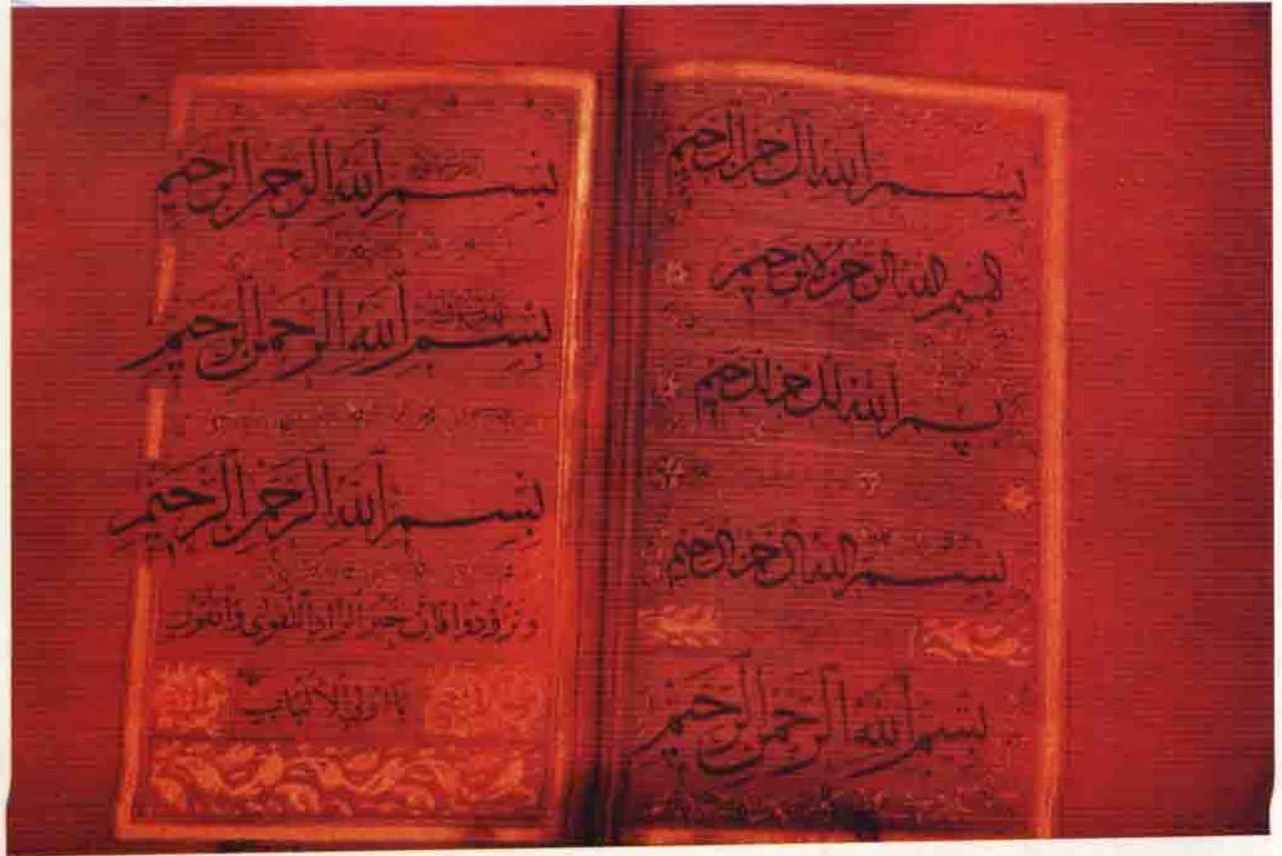 بسم الله الرحمن الرحيم
بسم الله الرحمن الرحيم
بسم الله الرحمن الرحيم
بسم الله الرحمن الرحيم
بسم الله الرحمن الرحيم
بِسْمِ اللهِ الرَّحمنِ الرَّحِيمِ
بِسْمِ اللهِ الرَّحمنِ الرَّحِيمِ
بِسْمِ اللهِ الرَّحمنِ الرَّحِيمِ
وتزودوا فان خير الزاد التقوى واتقون
يا اولي الالباب